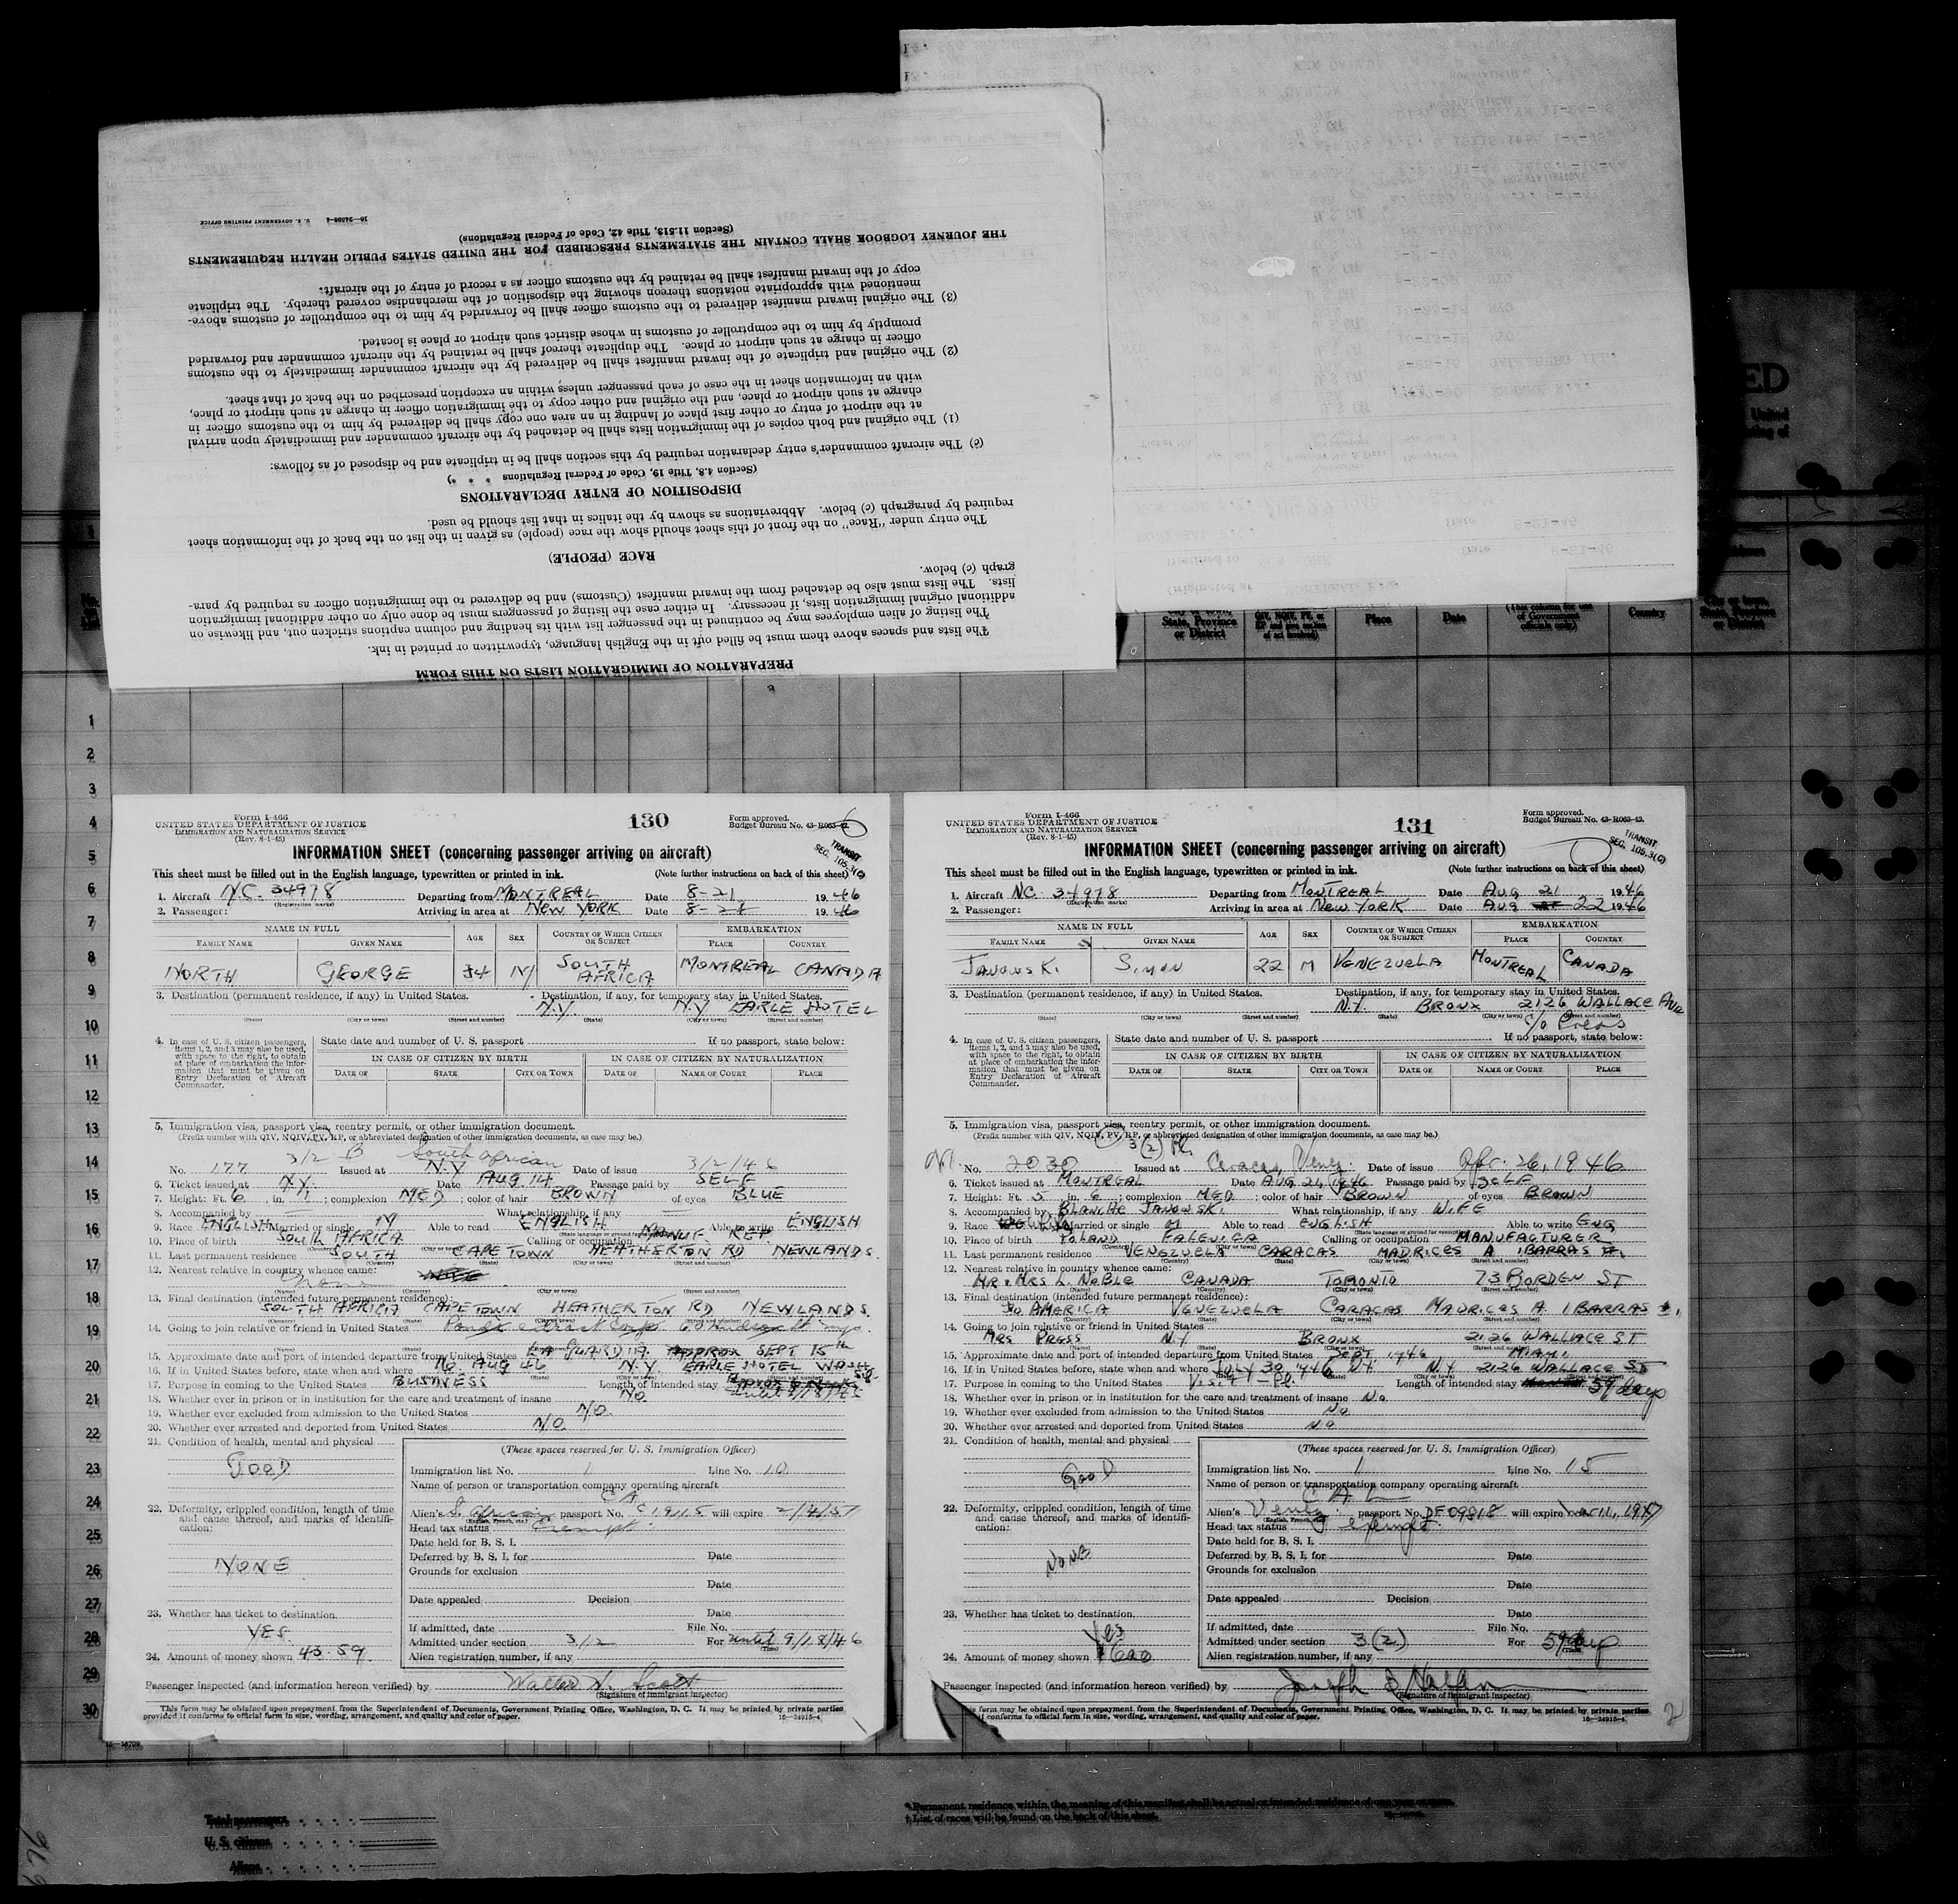 16—24506-4 U. S. GOVERNMENT PRINTING OFFICE
PREPARATION OF IMMIGRATION LISTS ON THIS FORM
The lists and spaces above them must be filled out in the English language, typewritten or printed in ink.
The listing of alien employees may be continued in the passenger list with its heading and column captions stricken out, and likewise on
additional original immigration lists, if necessary. In either case the listing of passengers must be done only on other additional immigration
lists. The lists must also be detached from the inward manifest (Customs) and be delivered to the immigration officer as required by para-
graph (c) below.
RACE (PEOPLE)
The entry under "Race" on the front of this sheet should show the race (people) as given in the list on the back of the information sheet
required by paragraph (c) below. Abbreviations as shown by the italics in that list should be used.
DISPOSITION OF ENTRY DECLARATIONS
(Section 4.8, Title 19, Code of Federal Regulations * * *)
(c) The aircraft commander's entry declaration required by this section shall be in triplicate and be disposed of as follows:
(1) The original and both copies of the immigration lists shall be detached by the aircraft commander and immediately upon arrival
at the airport of entry or other first place of landing in an area one copy shall be delivered by him to the customs officer in
charge at such airport or place, and the original and other copy to the immigration officer in charge at such airport or place,
with an information sheet in the case of each passenger unless within an exception prescribed on the back of that sheet.
(2) The original and triplicate of the inward manifest shall be delivered by the aircraft commander immediately to the customs
officer in charge at such airport or place. The duplicate thereof shall be retained by the aircraft commander and forwarded
promptly by him to the comptroller of customs in whose district such airport or place is located.
(3) The original inward manifest delivered to the customs officer shall be forwarded by him to the comptroller of customs above-
mentioned with appropriate notations thereon showing the disposition of the merchandise covered thereby. The triplicate
copy of the inward manifest shall be retained by the customs officer as a record of entry of the aircraft.
THE JOURNEY LOGBOOK SHALL CONTAIN THE STATEMENTS PRESCRIBED FOR THE UNITED STATES PUBLIC HEALTH REQUIREMENTS
(Section 11.513, Title 42, Code of Federal Regulations)
State, Province or District
Place
Date
(This column for use of Government officials only)
Country
Form I-466
UNITED STATES DEPARTMENT OF JUSTICE
IMMIGRATION AND NATURALIZATION SERVICE
(Rev. 8-1-45)
130
Form approved.
Budget Bureau No. 43-R063-42.
TRANSIT
INFORMATION SHEET (concerning passenger arriving on aircraft)
This sheet must be filled out in the English language, typewritten or printed in ink. (Note further instructions on back of this sheet)
1. Aircraft NC. 34978 (Registration marks) Departing from MONTREAL Date 8-21 1946
2. Passenger: Arriving in area at NEW YORK Date 8-21 1946
NAME IN FULL AGE SEX COUNTRY OF WHICH CITIZEN OR SUBJECT EMBARKATION
FAMILY NAME GIVEN NAME PLACE COUNTRY
NORTH GEORGE 34 M SOUTH AFRICA MONTREAL CANADA
3. Destination (permanent residence, if any) in United States. Destination, if any, for temporary stay in United States.
N.Y. N.Y EARLE HOTEL
(State) (City or town) (Street and number) (State) (City or town) (Street and number)
4. In case of U. S. citizen passengers, items 1, 2, and 3 may also be used, with space to the right, to obtain at place of embarkation the information that must be given on Entry Declaration of Aircraft Commander.
State date and number of U. S. passport If no passport, state below:
IN CASE OF CITIZEN BY BIRTH IN CASE OF CITIZEN BY NATURALIZATION
DATE OF STATE CITY OR TOWN DATE OF NAME OF COURT PLACE
5. Immigration visa, passport visa, reentry permit, or other immigration document.
(Prefix number with QIV, NQIV, PV, RP, or abbreviated designation of other immigration documents, as case may be.)
3/2 B South African
No. 177 Issued at N.Y Date of issue 3/2/46
6. Ticket issued at N.Y. Date AUG 14 Passage paid by SELF
7. Height: Ft. 6, in. 1; complexion MED; color of hair BROWN of eyes BLUE
8. Accompanied by What relationship, if any
9. Race ENGLISH Married or single M Able to read ENGLISH Able to write ENGLISH
10. Place of birth SOUTH AFRICA Calling or occupation MANUF. REP
11. Last permanent residence SOUTH CAPE TOWN HEATHERTON RD NEWLANDS.
12. Nearest relative in country whence came:
None
13. Final destination (intended future permanent residence):
SOUTH AFRICA CAPETOWN HEATHERTON RD NEWLANDS.
14. Going to join relative or friend in United States
15. Approximate date and port of intended departure from United States LA GUARDIA APPROX SEPT 15th
16. If in United States before, state when and where AUG 46 N.Y. EARLE HOTEL WASH SQ.
17. Purpose in coming to the United States BUSINESS Length of intended stay until 9/18/46
18. Whether ever in prison or in institution for the care and treatment of insane NO.
19. Whether ever excluded from admission to the United States NO.
20. Whether ever arrested and deported from United States NO.
21. Condition of health, mental and physical
GOOD
22. Deformity, crippled condition, length of time and cause thereof, and marks of identification:
NONE
23. Whether has ticket to destination.
YES.
24. Amount of money shown 43.59.
(These spaces reserved for U. S. Immigration Officer)
Immigration list No. 1 Line No. 10
Name of person or transportation company operating aircraft
Alien's S. African passport No. C 19115 will expire 2/4/51
Head tax status Exempt
Date held for B. S. I.
Deferred by B. S. I. for Date
Grounds for exclusion
Date
Date appealed Decision
Date
If admitted, date File No.
Admitted under section 3/2 For until 9/18/46
Alien registration number, if any
Passenger inspected (and information hereon verified) by Walter H. Scott
(Signature of immigrant inspector)
This form may be obtained upon prepayment from the Superintendent of Documents, Government Printing Office, Washington, D. C. It may be printed by private parties
provided it conforms to official form in size, wording, arrangement, and quality and color of paper. 16—24915-4
Form I-466
UNITED STATES DEPARTMENT OF JUSTICE
IMMIGRATION AND NATURALIZATION SERVICE
(Rev. 8-1-45)
131
Form approved.
Budget Bureau No. 43-R063-42.
TRANSIT
SEC. 105.3(C)
INFORMATION SHEET (concerning passenger arriving on aircraft)
This sheet must be filled out in the English language, typewritten or printed in ink. (Note further instructions on back of this sheet)
1. Aircraft NC 34978 (Registration marks) Departing from MONTREAL Date AUG 21 1946
2. Passenger: Arriving in area at NEW YORK Date AUG 22 1946
NAME IN FULL AGE SEX COUNTRY OF WHICH CITIZEN OR SUBJECT EMBARKATION
FAMILY NAME GIVEN NAME PLACE COUNTRY
JANOWSKI SIMON 22 M VENEZUELA MONTREAL CANADA
3. Destination (permanent residence, if any) in United States. Destination, if any, for temporary stay in United States.
N.Y. BRONX 2126 WALLACE AVE
c/o Press
4. In case of U. S. citizen passengers, items 1, 2, and 3 may also be used, with space to the right, to obtain at place of embarkation the information that must be given on Entry Declaration of Aircraft Commander.
State date and number of U. S. passport If no passport, state below:
IN CASE OF CITIZEN BY BIRTH IN CASE OF CITIZEN BY NATURALIZATION
DATE OF STATE CITY OR TOWN DATE OF NAME OF COURT PLACE
5. Immigration visa, passport visa, reentry permit, or other immigration document.
(Prefix number with QIV, NQIV, PV, RP, or abbreviated designation of other immigration documents, as case may be.)
3(2) Pl.
No. 2030 Issued at Caracas, Venez. Date of issue Apr. 26, 1946
6. Ticket issued at MONTREAL Date AUG 21, 1946 Passage paid by SELF
7. Height: Ft. 5, in. 6; complexion MED.; color of hair BROWN of eyes BROWN
8. Accompanied by BLANCHE JANOWSKI What relationship, if any WIFE
9. Race Married or single M Able to read ENGLISH Able to write ENG
10. Place of birth POLAND FALENICA Calling or occupation MANUFACTURER
11. Last permanent residence VENEZUELA CARACAS MADRICES A IBARRAS
12. Nearest relative in country whence came:
MR & MRS L. NOBLE CANADA TORONTO 73 BORDEN ST
13. Final destination (intended future permanent residence):
SO AMERICA VENEZUELA CARACAS MADRICES A IBARRAS
14. Going to join relative or friend in United States
MRS PRESS N.Y BRONX 2126 WALLACE ST
15. Approximate date and port of intended departure from United States SEPT 1946 MIAMI
16. If in United States before, state when and where JULY 30, 1946 N.Y. 2126 WALLACE ST
17. Purpose in coming to the United States Visit — Pl. Length of intended stay 59 days
18. Whether ever in prison or in institution for the care and treatment of insane No
19. Whether ever excluded from admission to the United States No
20. Whether ever arrested and deported from United States No
21. Condition of health, mental and physical
GOOD
22. Deformity, crippled condition, length of time and cause thereof, and marks of identification:
NONE
23. Whether has ticket to destination.
Yes
24. Amount of money shown $600
(These spaces reserved for U. S. Immigration Officer)
Immigration list No. 1 Line No. 15
Name of person or transportation company operating aircraft
C A L
Alien's Venez. passport No. DF 09818 will expire Mar 11, 1947
Head tax status exempt.
Date held for B. S. I.
Deferred by B. S. I. for Date
Grounds for exclusion
Date
Date appealed Decision
Date
If admitted, date File No.
Admitted under section 3(2) For 59 days
Alien registration number, if any
Passenger inspected (and information hereon verified) by Joseph
(Signature of immigrant inspector)
This form may be obtained upon prepayment from the Superintendent of Documents, Government Printing Office, Washington, D. C. It may be printed by private parties
if conforms to official form in size, wording, arrangement, and quality and color of paper. 16—24915-4
Total passengers
U. S. citizens
Aliens
* Permanent residence within the meaning of this manifest shall be actual or intended residence of one year or more.
† List of races will be found on the back of this sheet.